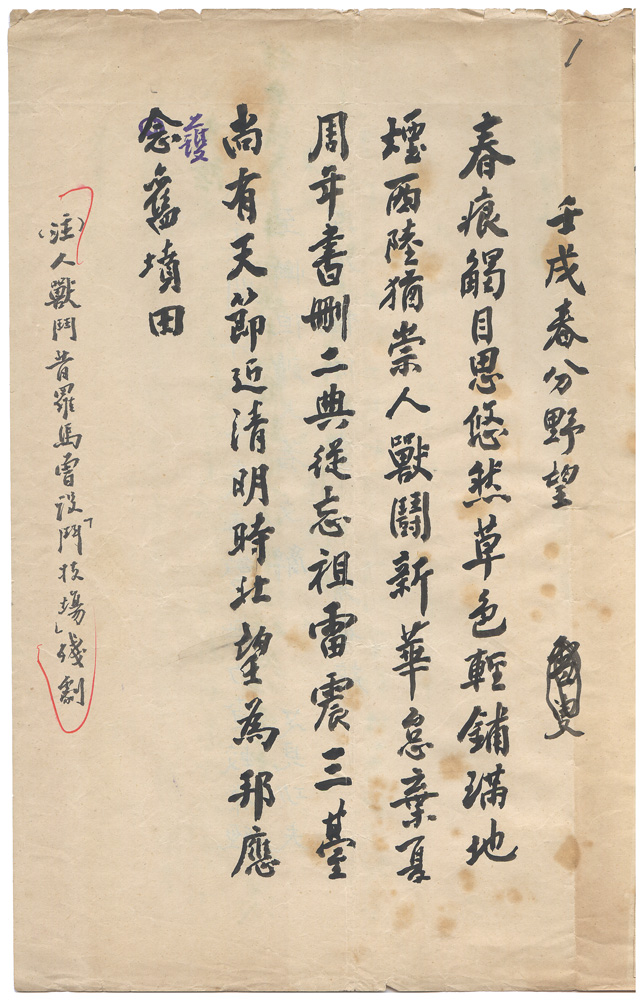 1
壬戌春分野望
春痕觸目思悠然草色輕鋪滿地
煙西陸猶崇人獸鬭新華怠棄夏
周年書刪二典從忘祖雷震三臺
尚有天節近清明時北望為邦應
護
念舊墳田
(注)人獸鬥昔羅馬曾設「鬥技場」殘劇